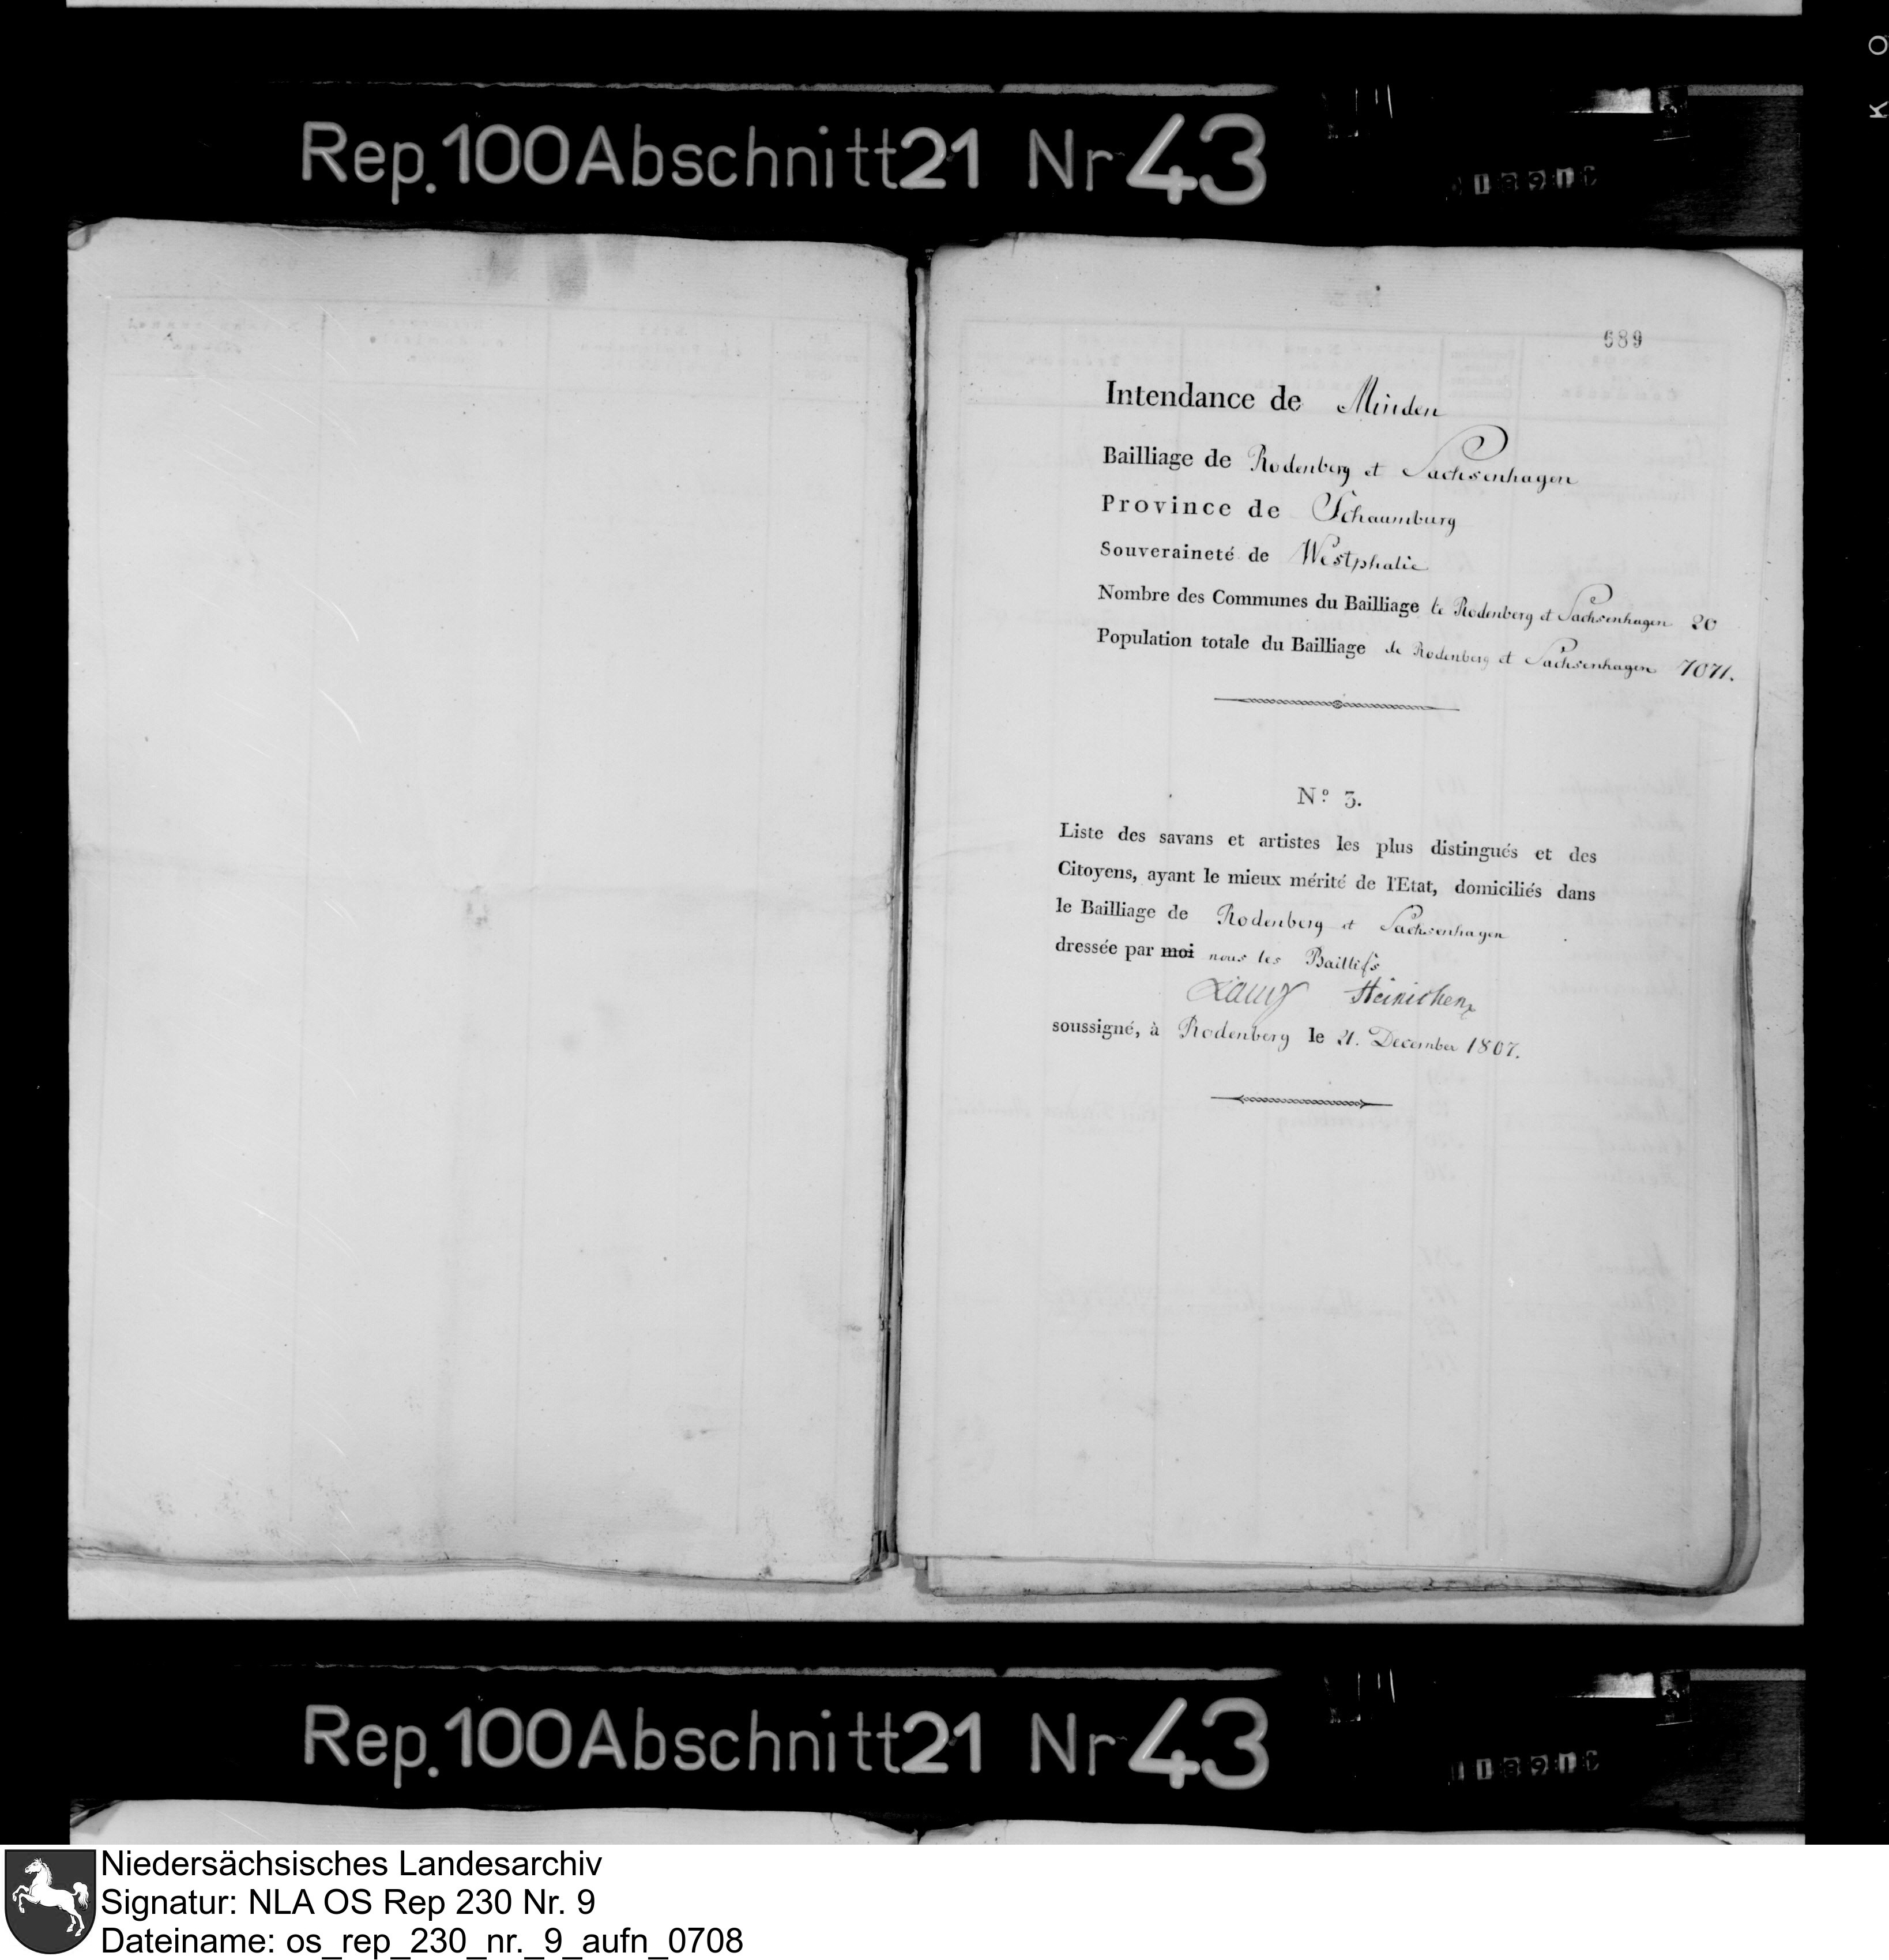 Rep.100Abschnitt21 Nr 43
689
Intendance de Minden
Bailliage de Rodenberg et Sachsenhagen
Province de Schaumburg
Souveraineté de Westphalie
Nombre des Communes du Bailliage de Rodenberg et Sachsenhagen 20
Population totale du Bailliage de Rodenberg et Sachsenhagen 7071.
Nº 3.
Liste des savans et artistes les plus distingués et des
Citoyens, ayant le mieux mérité de l'Etat, domiciliés dans
le Bailliage de Rodenberg et Sachsenhagen
dressée par moi nous les Baillifs
Heinichen
soussigné, à Rodenberg le 21. December 1807.
Rep.100Abschnitt21 Nr 43
Niedersächsisches Landesarchiv
Signatur: NLA OS Rep 230 Nr. 9
Dateiname: os_rep_230_nr._9_aufn_0708